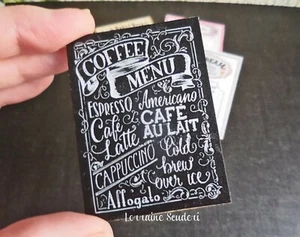 COFFEE
MENU
ESPRESSO
Americano
Café
Latte
CAFÉ
AU LAIT
CAPPUCCINO
Cold
brew
over ice
Affogato
Lorraine Scuderi